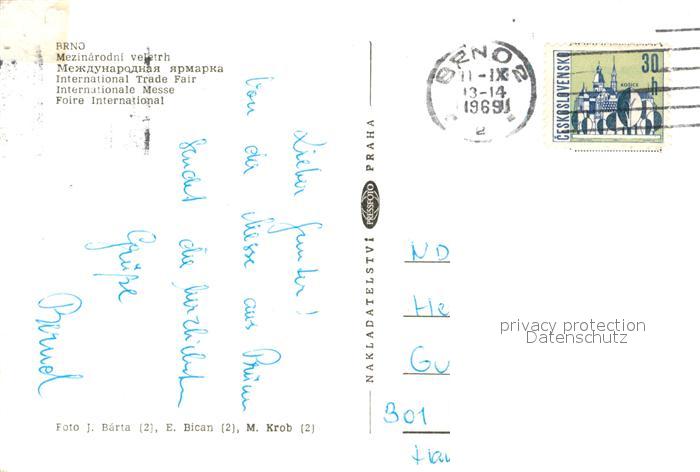 BRNO
Mezinárodní veletrh
Международная ярмарка
International Trade Fair
Internationale Messe
Foire International
Lieber Gunter!
Von der Messe aus Brünn
sendet die herzlichsten
Grüße
Bernd
Foto J. Bárta (2), E. Bican (2), M. Krob (2)
NAKLADATELSTVÍ PRESSFOTO PRAHA
BRNO 2
11-IX
13-14
1969
2
ČESKOSLOVENSKO
30 h
KOŠICE
ND
He
Gu
301
Hai
privacy protection
Datenschutz